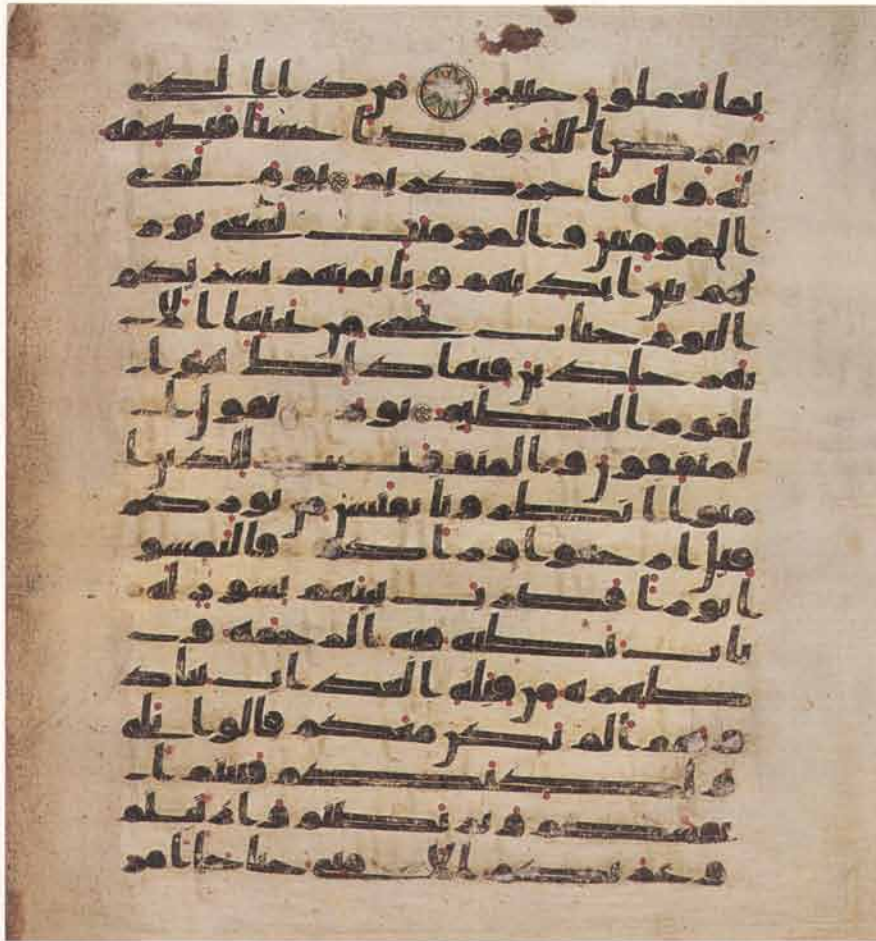 بما تعملون خبير من ذا الذى
يقرض الله قرضا حسنا فيضعفه
له وله اجر كريم يوم ترى
المومنين والمومنت يسعى نور
هم بين ايديهم وبايمنهم بشريكم
اليوم جنت تجرى من تحتها الا
نهر خلدين فيها ذلك هو ا
لفوز العظيم يوم يقول ا
لمنفقون والمنفقت للذين ا
منوا انظرونا نقتبس من نوركم
قيل ارجعوا وراكم فالتمسو
ا نورا فضرب بينهم بسور له
باب باطنه فيه الرحمه و
ظهره من قبله العذاب يناد
ونهم الم نكن معكم قالوا بلى
ولكنكم فتنتم ا
نفسكم وتربصتم وارتبتم
وغرتكم الامنى حتى جا امر